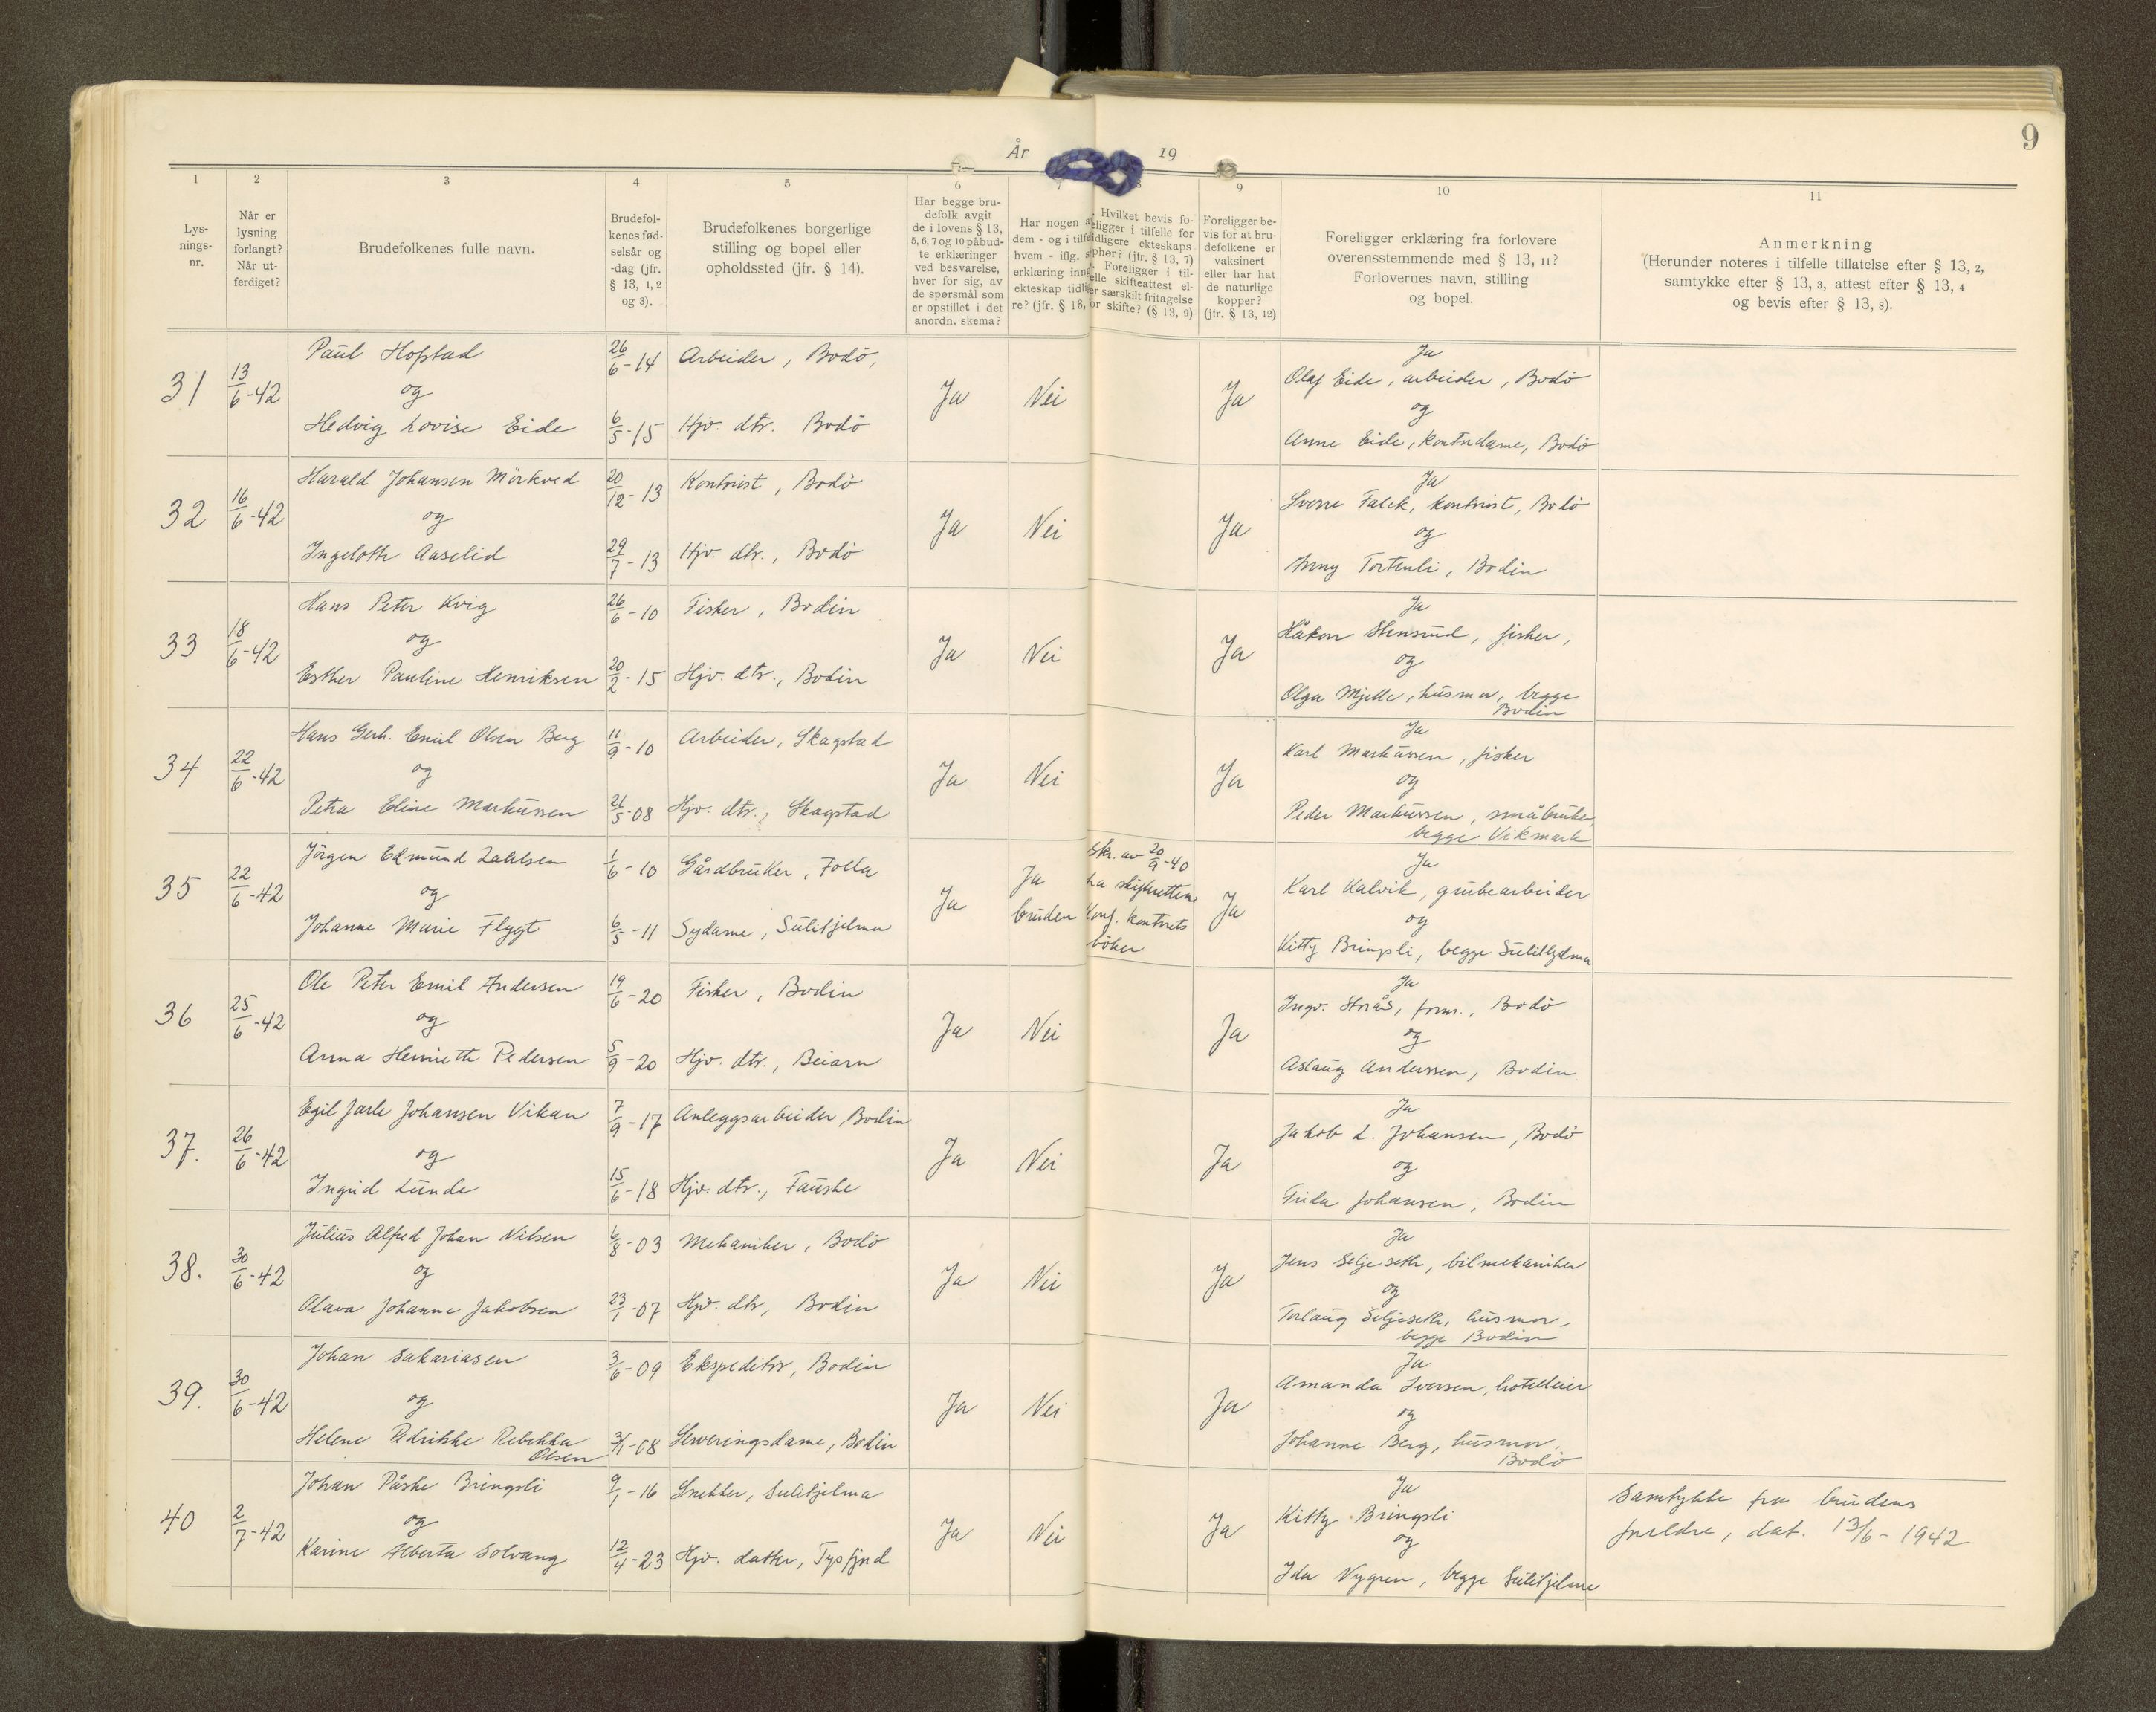 9
År 19
1 2 3 4 5 6 7 8 9 10 11
Lys-
nings-
nr.
Når er
lysning
forlangt?
Når ut-
ferdiget?
Brudefolkenes fulle navn.
Brudefol-
kenes fød-
selsår og
-dag (jfr.
§ 13, 1, 2
og 3).
Brudefolkenes borgerlige
stilling og bopel eller
opholdssted (jfr. § 14).
Har begge bru-
defolk avgit
de i lovens § 13,
5, 6, 7 og 10 påbud-
te erklæringer
ved besvarelse,
hver for sig, av
de spørsmål som
er opstillet i det
anordn. skema?
Har nogen
dem - og i tilfe
hvem - iflg.
erklæring inng
ekteskap tidli
re? (jfr. § 13,
Hvilket bevis fo-
eligger i tilfelle for
idligere ekteskaps
phør? (jfr. § 13, 7)
Foreligger i til-
elle skifteattest el-
er særskilt fritagelse
or skifte? (§ 13, 9)
Foreligger be-
vis for at bru-
defolkene er
vaksinert
eller har hat
de naturlige
kopper?
(jfr. § 13, 12)
Foreligger erklæring fra forlovere
overensstemmende med § 13, 11?
Forlovernes navn, stilling
og bopel.
Anmerkning
(Herunder noteres i tilfelle tillatelse efter § 13, 2,
samtykke efter § 13, 3, attest efter § 13, 4
og bevis efter § 13, 8).
31 13/6-42 Ja Nei Ja
Paul Hofstad 26/6-14 Arbeider, Bodö,
og
Hedvig Lovise Eide 6/5-15 Hjv. dtr. Bodö
Ja
Olaf Eide, arbeider, Bodö
og
Anne Eide, kontrdame, Bodö
32 16/6-42 Ja Nei Ja
Harald Johansen Mörkved 20/12-13 Kontorist, Bodö
og
Ingeloth Aaselid 29/7-13 Hjv. dtr., Bodö
Ja
Sverre Falck, kontorist, Bodö
og
Anny Tortenli, Bodin
33 18/6-42 Ja Nei Ja
Hans Peter Kvig 26/6-10 Fisker, Bodin
og
Esther Pauline Henriksen 20/2-15 Hjv. dtr., Bodin
Ja
Håkon Stensund, fisker,
og
Olga Mjelle, husmor, begge
Bodin
34 22/6-42 Ja Nei Ja
Hans Gerh. Emil Olsen Berg 11/9-10 Arbeider, Skagstad
og
Petra Eline Markussen 21/5-08 Hjv. dtr., Skagstad
Ja
Karl Markussen, fisker
og
Peder Markussen, småbruke
begge Vikmark
35 22/6-42 Ja Ja bruden Ja
Jörgen Edmund Zahlsen 1/6-10 Gårdbruker, Folla
og
Johanne Marie Flygt 6/5-11 Sydame, Sulitjelma
skr. av 20/9-40
fra skifteretten
konf. kontorets
böker
Ja
Karl Kalvik, grubearbeider
og
Kitty Bringsli, begge Sulitjelma
36 25/6-42 Ja Nei Ja
Ole Peter Emil Andersen 19/6-20 Fisker, Bodin
og
Anna Henrieth Pedersen 5/9-20 Hjv. dtr., Beiarn
Ja
Ingv. Straås, form., Bodö
og
Aslaug Anderssen, Bodin
37. 26/6-42 Ja Nei Ja
Egil Jarle Johansen Vikan 7/9-17 Anleggsarbeider, Bodin
og
Ingrid Lunde 15/6-18 Hjv. dtr., Fauske
Ja
Jakob L. Johansen, Bodö
og
Frida Johansen, Bodin
38. 30/6-42 Ja Nei Ja
Julius Alfred Johan Nilsen 6/8-03 Mekaniker, Bodö
og
Olava Johanne Jakobsen 23/1-07 Hjv. dtr, Bodin
Ja
Jens Seljeseth, bilmekaniker
og
Torlaug Seljeseth, husmor,
begge Bodin
39. 30/6-42 Ja Nei Ja
Johan Sakariasen 3/6-09 Ekspeditör, Bodin
og
Helene Pedrikke Rebekka 3/1-08 Serveringsdame, Bodin
Olsen
Ja
Amanda Iversen, hotelleier
og
Johanne Berg, husmor,
Bodö
40 2/7-42 Ja Nei Ja
Johan Påske Bringsli 9/1-16 Snekker, Sulitjelma
og
Karine Alberta Solvang 12/4-23 Hjv. datter, Tysfjord
Ja
Kitty Bringsli
og
Ida Nygren, begge Sulitjelma
Samtykke fra brudens
foreldre, dat. 13/6-1942